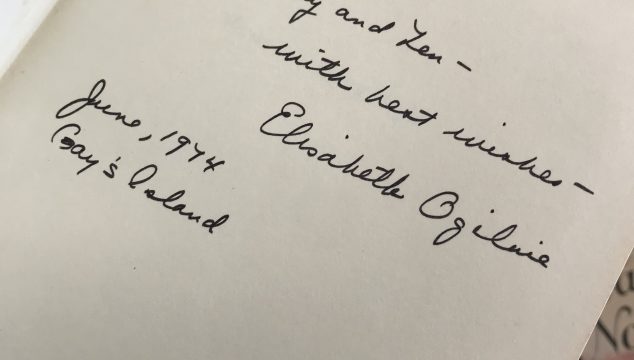 and Len –
with best wishes –
Elisabeth Ogilvie
June, 1974
Gay's Island